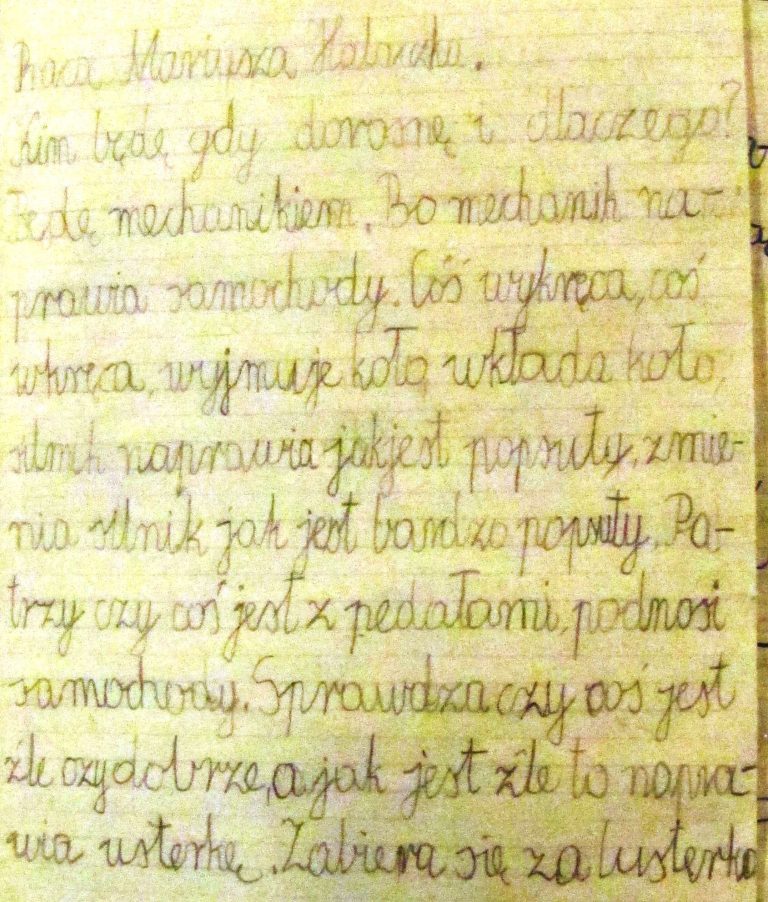 Praca Mariusza
Kim będę gdy dorosnę i dlaczego?
Będę mechanikiem. Bo mechanik na-
prawia samochody. Coś wykręca, coś
wkręca, wyjmuje koło wkłada koło,
silnik naprawia jak jest popsuty, zmie-
nia silnik jak jest bardzo popsuty. Pa-
trzy czy coś jest z pedałami, podnosi
samochody. Sprawdza czy coś jest
źle czy dobrze, a jak jest źle to napra-
wia usterkę. Zabiera się za lusterka